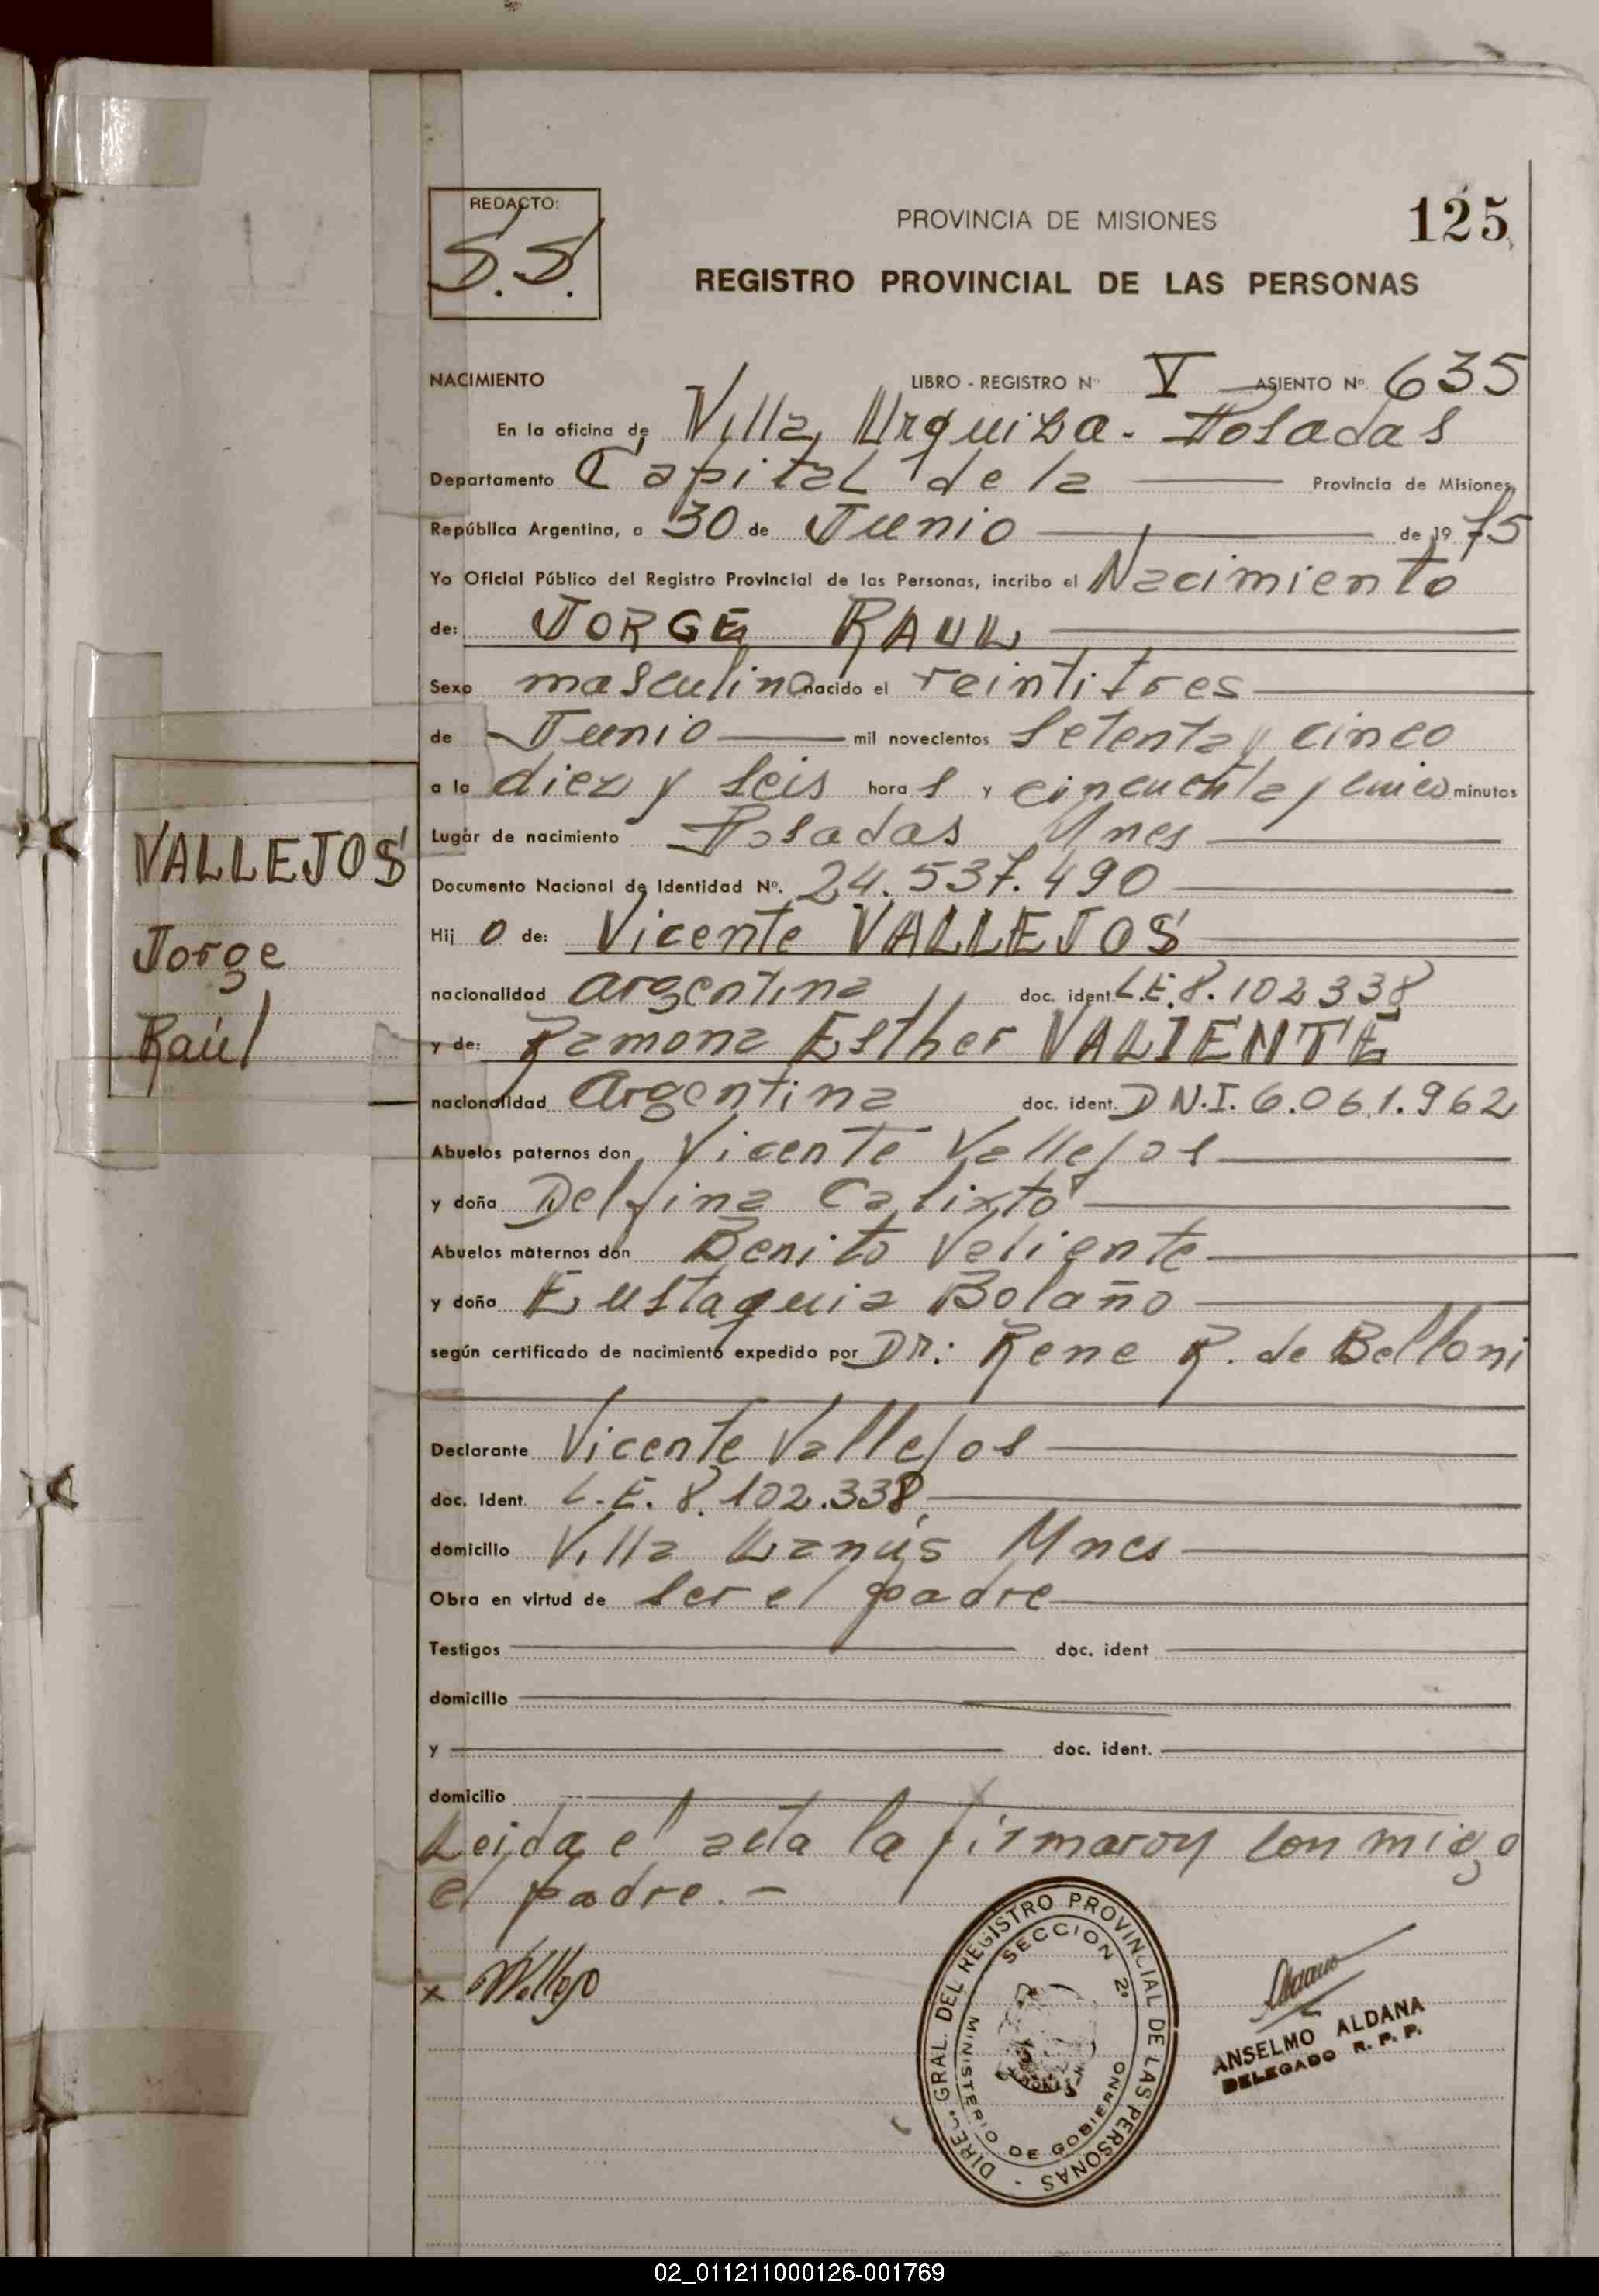 REDACTO:
S.S.
PROVINCIA DE MISIONES
125
REGISTRO PROVINCIAL DE LAS PERSONAS
NACIMIENTO LIBRO - REGISTRO Nº V ASIENTO Nº. 635
En la oficina de Villa Urquiza - Posadas
Departamento Capital de la Provincia de Misiones
República Argentina, a 30 de Junio de 1975
Yo Oficial Público del Registro Provincial de las Personas, incribo el Nacimiento
de: JORGE RAUL
Sexo masculino nacido el veintitres
de Junio mil novecientos setenta y cinco
a la diez y seis hora s y cincuenta y cinco minutos
Lugar de nacimiento Posadas Mnes
Documento Nacional de Identidad Nº. 24.537.490
Hij o de: Vicente VALLEJOS
nacionalidad argentina doc. ident. L.E. 8.102338
y de: Ramona Esther VALIENTE
nacionalidad Argentina doc. ident. D N.I. 6.061.962
Abuelos paternos don Vicente Vallejos
y doña Delfina Calixto
Abuelos maternos don Benito Valiente
y doña Eustaquia Bolaño
según certificado de nacimiento expedido por Dr: Rene R. de Belloni
Declarante Vicente Vallejos
doc. Ident. L.E. 8.102.338
domicilio Villa Lanús Mnes
Obra en virtud de ser el padre
Testigos doc. ident
domicilio
y doc. ident.
domicilio
Leida el acta la firmaron con migo
el padre. -
VALLEJOS
Jorge
Raúl
x Vallejo
DIREC. GRAL. DEL REGISTRO PROVINCIAL DE LAS PERSONAS -
SECCION 2ª
MINISTERIO DE GOBIERNO
ANSELMO ALDANA
DELEGADO R. P. P.
02_011211000126-001769